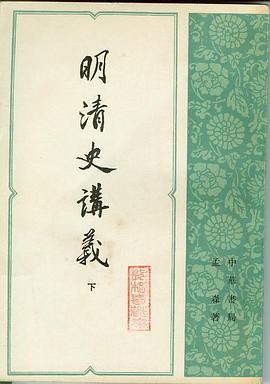 明清史講義
下
孟森著
中華書局